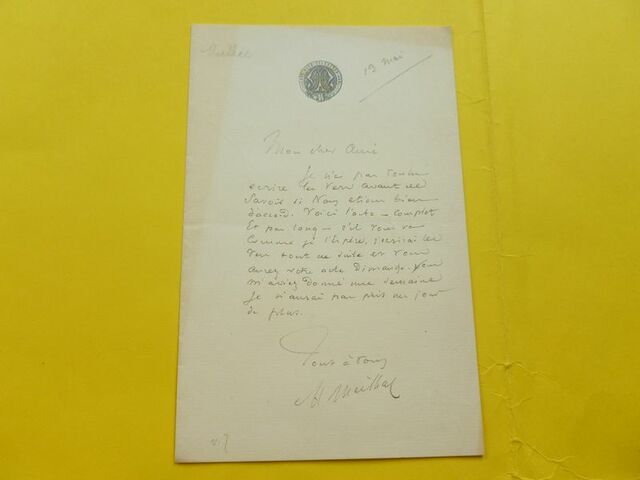 Meilhac
19 Mai
Mon cher Ami
Je n'ai pas voulu
écrire les vers avant de
savoir si nous étions bien
d'accord. Voici l'acte – complet
Et pas long – s'il vous va
comme je l'espère, j'écrirai les
vers tout de suite et vous
aurez votre acte Dimanche. Vous
m'aviez donné une semaine
Je n'aurai pas pris un jour
de plus.
Tout à vous
H Meilhac